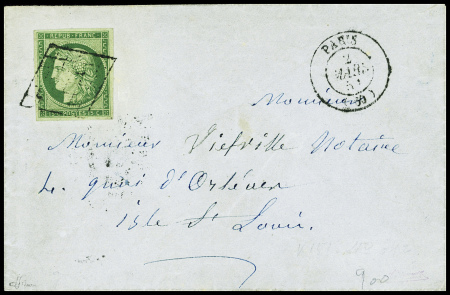 REPUB. FRANC.
POSTES
PARIS
2
MARS
51
Monsieur
Monsieur Viefville Notaire
4. quai d'Orléans
isle St Louis.
900